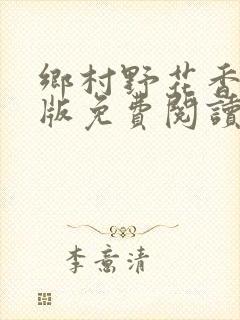 鄉村野花香
版免費閱讀
李意清